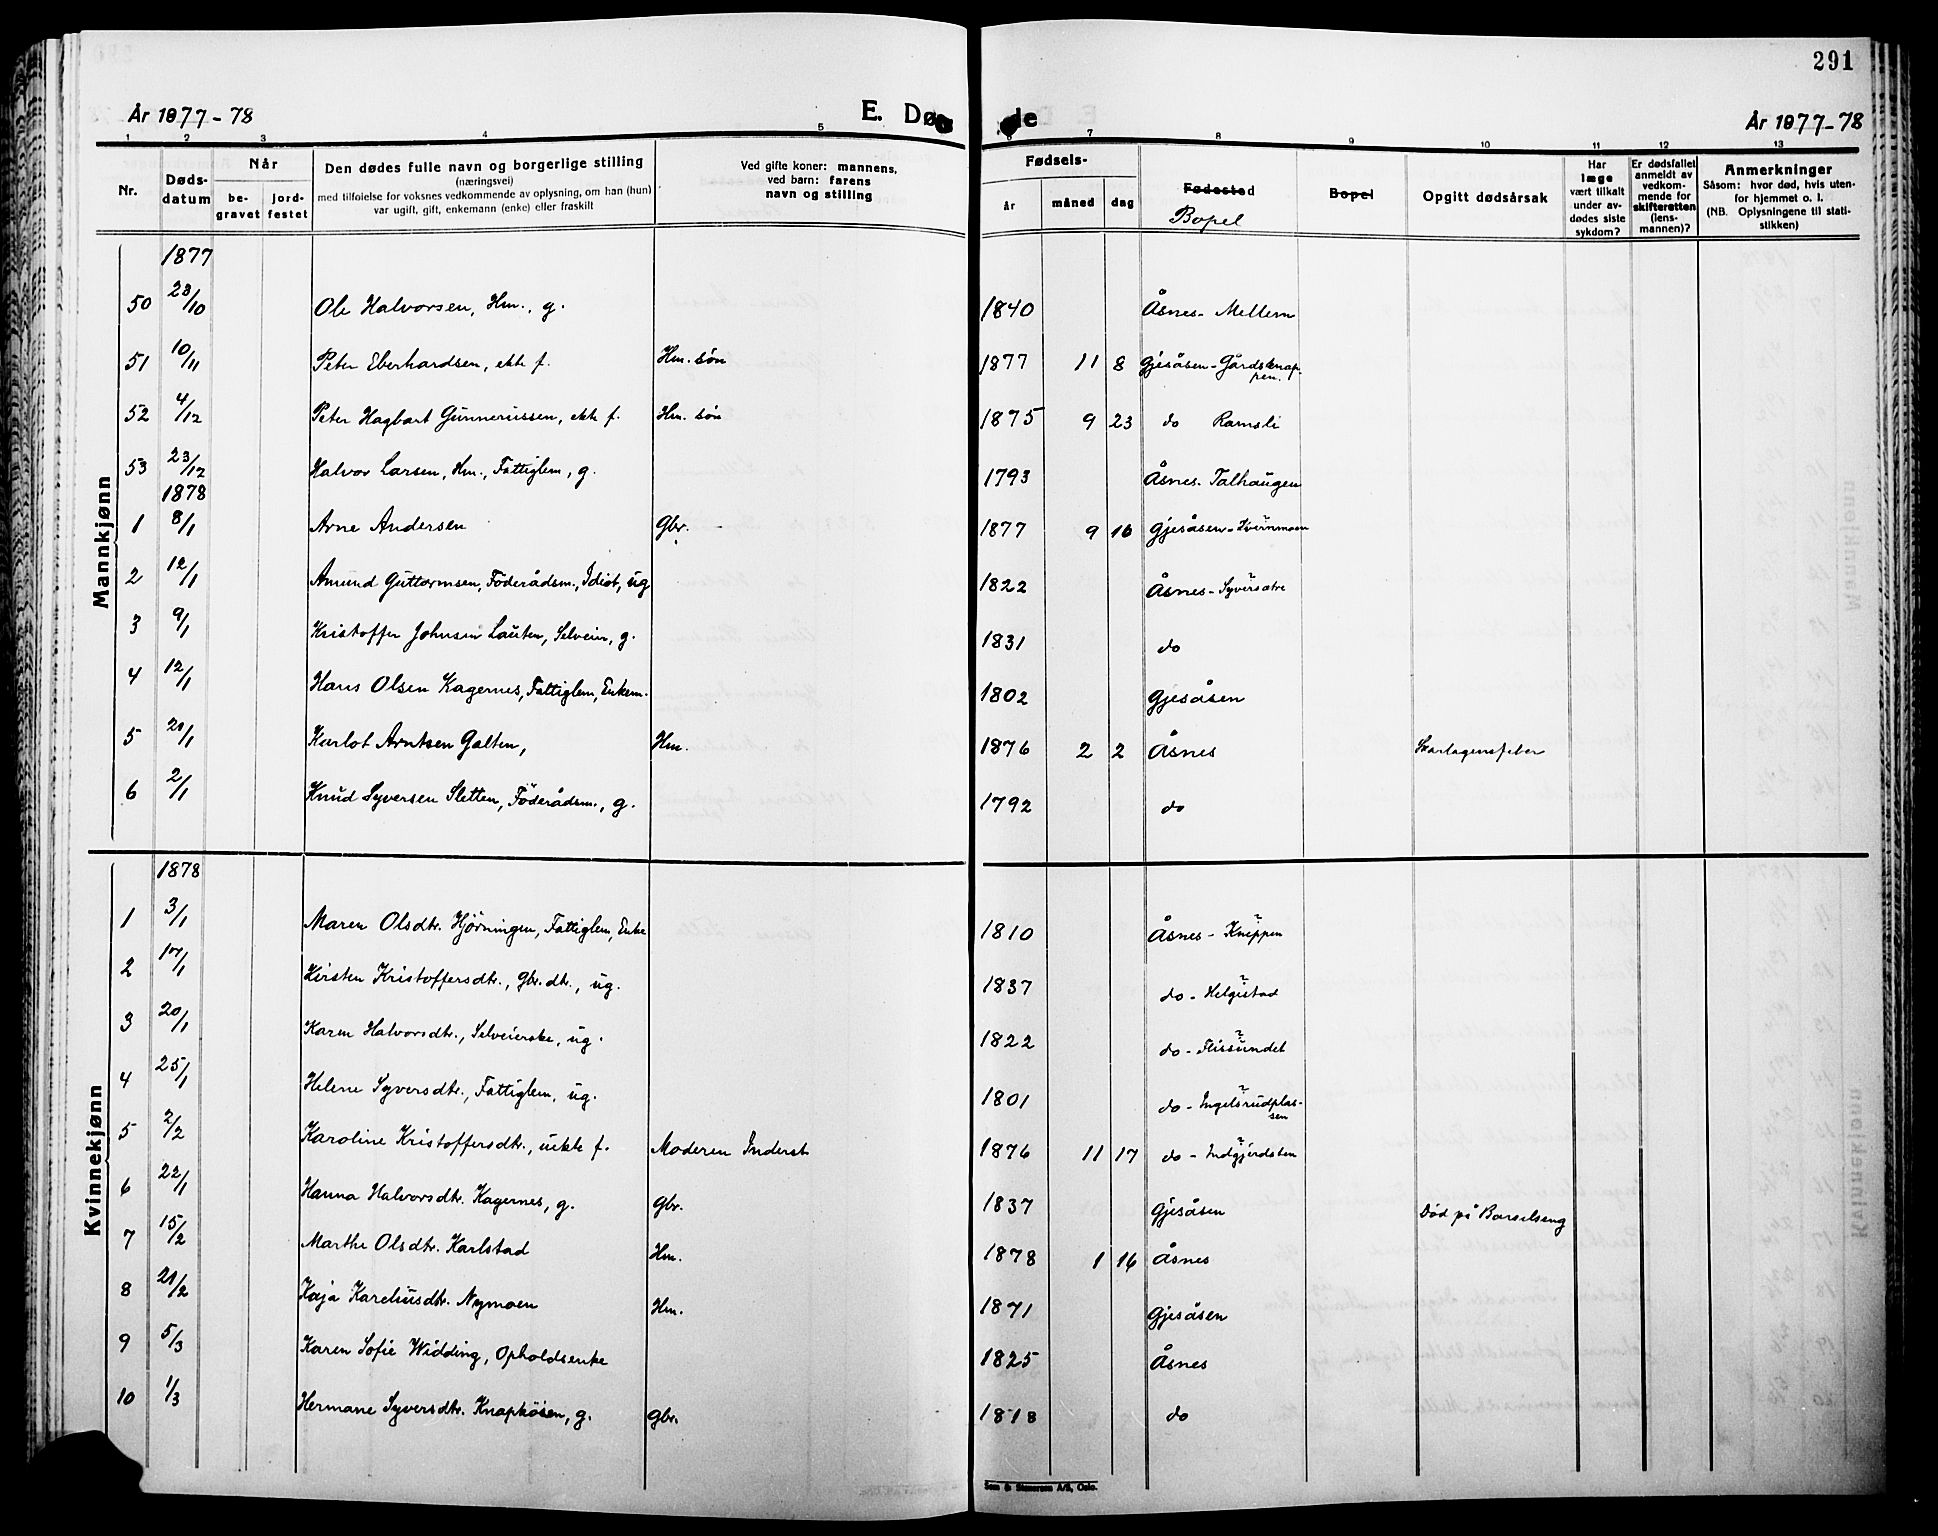 291
År 1877-78 E. Dø de År 1877-78
1 2 3 4 5 7 8 9 10 11 12 13
Nr. Dødsdatum Når begravet jordfestet
Den dødes fulle navn og borgerlige stilling
(næringsvei)
med tilføielse for voksnes vedkommende av oplysning, om han (hun)
var ugift, gift, enkemann (enke) eller fraskilt
Ved gifte koner: mannens,
ved barn: farens
navn og stilling
Fødsels-
år måned dag
Fødested
Bopel
Bopel
Opgitt dødsårsak
Har
læge
vært tilkalt
under av-
dødes siste
sykdom?
Er dødsfallet
anmeldt av
vedkom-
mende for
skifteretten
(lens-
mannen)?
Anmerkninger
Såsom: hvor død, hvis uten-
for hjemmet o. l.
(NB. Oplysningene til stati-
stikken)
Mannkjønn
1877
50 23/10 Ole Halvorsen, Hm., g. 1840 Åsnes - Mellem
51 10/11 Peter Eberhardsen, ekte f. Hm. søn 1877 11 8 Gjesåsen - Gårdsknap-
pen.
52 4/12 Peter Hagbart Gunnerussen, ekte f. Hm. søn 1875 9 23 do Ramsli
53 23/12 Halvor Larsen, Hm., Fattiglem, g. 1793 Åsnes - Talhaugen
1878
1 8/1 Arne Andersen Gbr. 1877 9 16 Gjesåsen - Kvernmoen
2 12/1 Amund Guttormsen, Föderådsm., Idiot, ug 1822 Åsnes - Syversætre
3 9/1 Kristoffer Johnsen Lauten, Selveier, g. 1831 do
4 12/1 Hans Olsen Kagernes, Fattiglem, Enkem. 1802 Gjesåsen
5 21/1 Karlot Arntsen Galten, Hm. 1876 2 2 Åsnes Skarlagensfeber
6 2/1 Knud Syversen Sletten, Föderådsm., g. 1792 do
Kvinnekjønn
1878
1 3/1 Maren Olsdtr. Hjørningen, Fattiglem, Enke 1810 Åsnes - Kneppen
2 17/1 Kirsten Kristoffersdtr., Gbr. dtr., ug. 1837 do - Helgistad
3 20/1 Karen Halvorsdtr., Selveierske, ug. 1822 do - Flissundet
4 25/1 Helene Syversdtr., Fattiglem, ug. 1801 do - Ingelsrudplas-
sen
5 2/2 Karoline Kristoffersdtr., uekte f. Moderen Inderst 1876 11 17 do - Indgjerdsten
6 22/1 Hanna Halvorsdtr. Kagernes, g. Gbr. 1837 Gjesåsen Død på Barselseng
7 15/2 Marthe Olsdtr. Karlstad Hm. 1878 1 16 Åsnes
8 21/2 Kaja Kareliusdtr. Nymoen Hm. 1871 Gjesåsen
9 5/3 Karen Sofie Widding, Opholdsenke 1825 Åsnes
10 1/3 Hermane Syversdtr. Knapkåsen, g. Gbr. 1818 do
Sem & Stenersen A/S, Oslo.